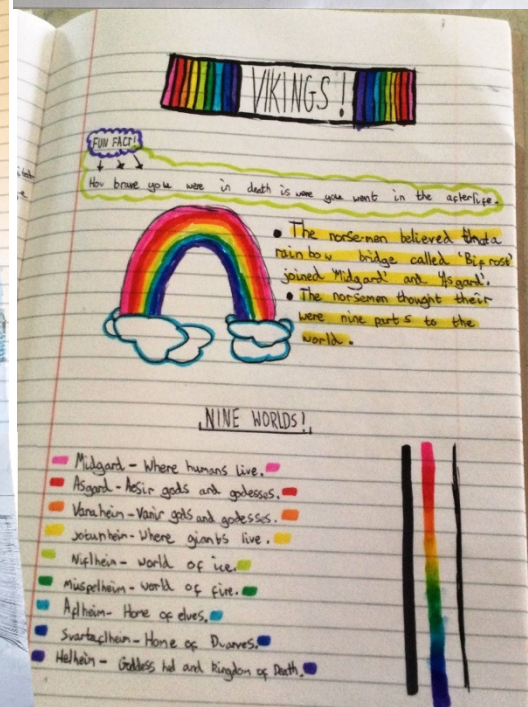 VIKINGS!
FUN FACT!
How brave you were in death is were you went in the afterlife.
• The norsemen believed that a
rainbow bridge called 'Bifrost'
joined 'Midgard' and 'Asgard'.
• The norsemen thought their
were nine parts to the
world.
NINE WORLDS!
Midgard - Where humans live.
Asgard - Aesir gods and godesses.
Vanaheim - Vanir gods and godesses.
Jotunheim - Where giants live.
Niflheim - World of ice.
Muspelheim - World of fire.
Aflheim - Home of elves.
Svartaflheim - Home of Dwarves.
Helheim - Goddess hel and kingdom of Death.